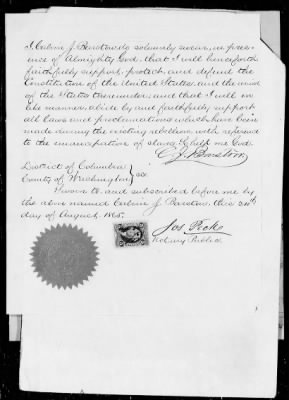 I, Calvin J. Barstow do solemnly swear, in pres-
ence of Almighty God, that I will henceforth
faithfully support, protect, and defend the
Constitution of the United States, and the union
of the States thereunder, and that I will in
like manner, abide by and faithfully support
all laws and proclamations which have been
made during the existing rebellion with reference
to the emancipation of slaves. So help me God.
C. J. Barstow
District of Columbia
County of Washington } ss.
Sworn to and subscribed before me by
the above named Calvin J. Barstow, this 24th
day of August, 1865.
Jos Peck
Notary Public